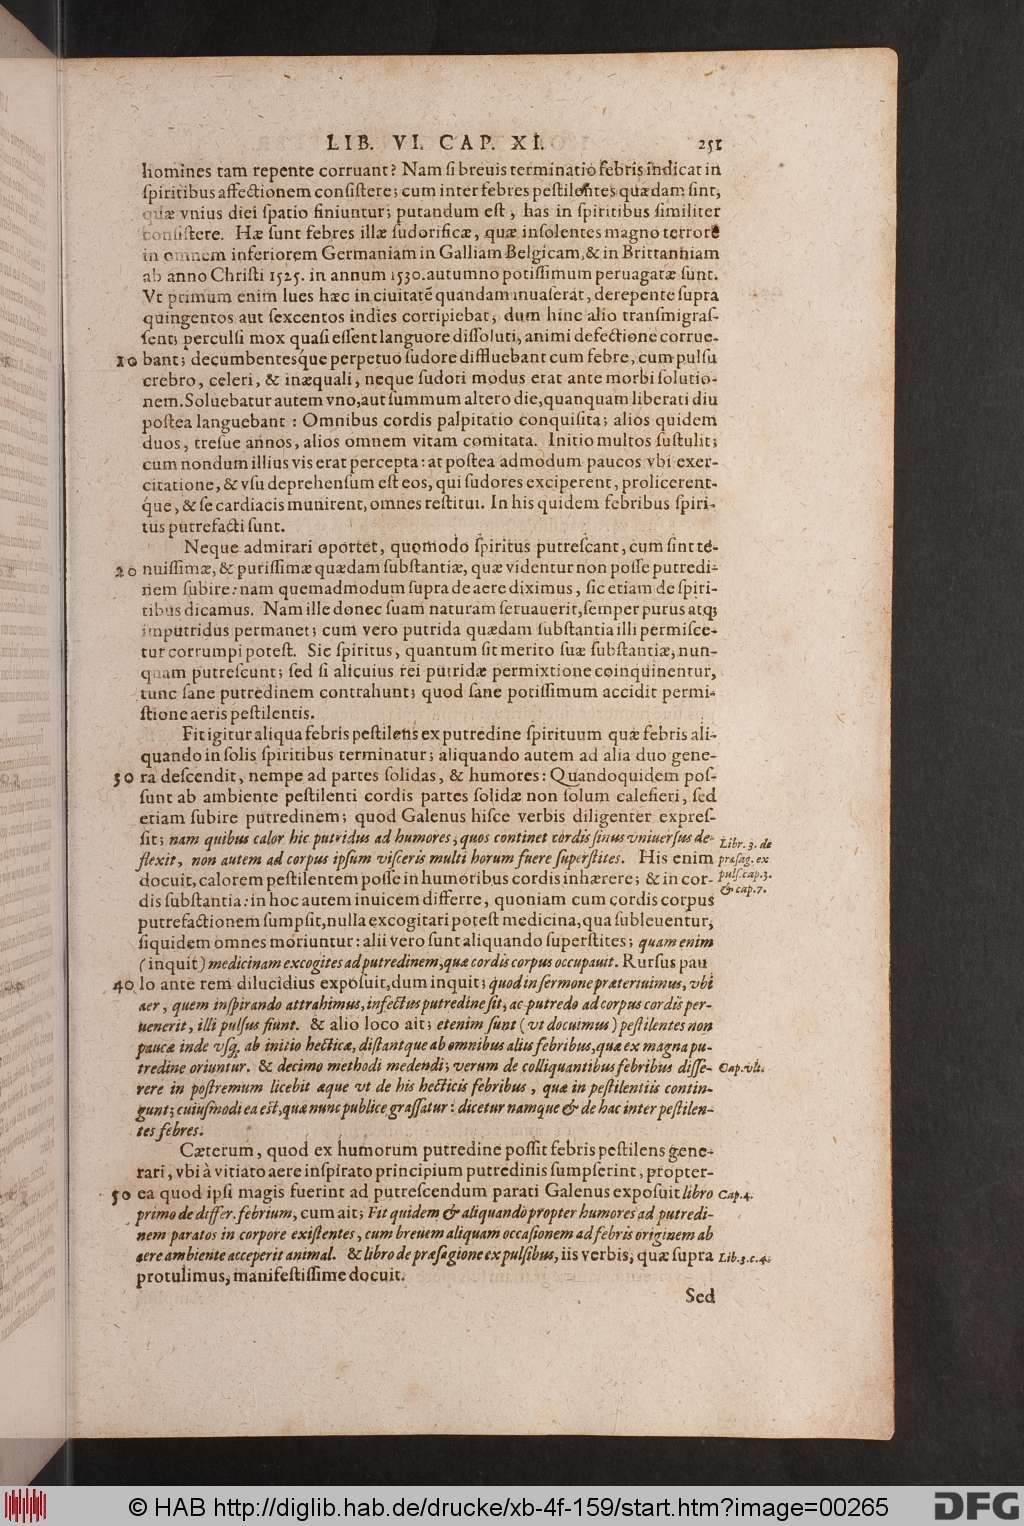 LIB. VI. CAP. XI. 251
homines tam repente corruant? Nam ſi breuis terminatio febris indicat in
ſpiritibus affectionem conſiſtere; cum inter febres peſtilentes quædam ſint,
quæ vnius diei ſpatio finiuntur; putandum eſt, has in ſpiritibus ſimiliter
conſiſtere. Hæ ſunt febres illæ ſudorificæ, quæ inſolentes magno terrore
in omnem inferiorem Germaniam in Galliam Belgicam, & in Brittanniam
ab anno Chriſti 1525. in annum 1530. autumno potiſſimum peruagatæ ſunt.
Vt primum enim lues hæc in ciuitatē quandam inuaſerat, derepente ſupra
quingentos aut ſexcentos indies corripiebat; dum hinc alio tranſmigraſ-
ſent; perculſi mox quaſi eſſent languore diſſoluti, animi defectione corrue-
10 bant; decumbentesque perpetuo ſudore diffluebant cum febre, cum pulſu
crebro, celeri, & inæquali, neque ſudori modus erat ante morbi ſolutio-
nem. Soluebatur autem vno, aut ſummum altero die, quanquam liberati diu
poſtea languebant: Omnibus cordis palpitatio conquiſita; alios quidem
duos, treſue annos, alios omnem vitam comitata. Initio multos ſuſtulit;
cum nondum illius vis erat percepta: at poſtea admodum paucos vbi exer-
citatione, & vſu deprehenſum eſt eos, qui ſudores exciperent, prolicerent-
que, & ſe cardiacis munirent, omnes reſtitui. In his quidem febribus ſpiri-
tus putrefacti ſunt.
Neque admirari oportet, quomodo ſpiritus putreſcant, cum ſint te-
20 nuiſſimæ, & puriſſimæ quædam ſubſtantiæ, quæ videntur non poſſe putredi-
nem ſubire: nam quemadmodum ſupra de aere diximus, ſic etiam de ſpiri-
tibus dicamus. Nam ille donec ſuam naturam ſeruauerit, ſemper purus atq;
imputridus permanet; cum vero putrida quædam ſubſtantia illi permiſce-
tur corrumpi poteſt. Sic ſpiritus, quantum ſit merito ſuæ ſubſtantiæ, nun-
quam putreſcunt; ſed ſi alicuius rei putridæ permixtione coinquinentur,
tunc ſane putredinem contrahunt; quod ſane potiſſimum accidit permi-
ſtione aeris peſtilentis.
Fit igitur aliqua febris peſtilens ex putredine ſpirituum quæ febris ali-
quando in ſolis ſpiritibus terminatur; aliquando autem ad alia duo gene-
30 ra deſcendit, nempe ad partes ſolidas, & humores: Quandoquidem poſ-
ſunt ab ambiente peſtilenti cordis partes ſolidæ non ſolum calefieri, ſed
etiam ſubire putredinem; quod Galenus hiſce verbis diligenter expreſ-
ſit; nam quibus calor hic putridus ad humores, quos continet cordis ſinus vniuerſus de- Libr. 3. de
flexit, non autem ad corpus ipſum viſceris multi horum fuere ſuperſtites. His enim præſag. ex
docuit, calorem peſtilentem poſſe in humoribus cordis inhærere; & in cor- pulſ. cap. 3.
dis ſubſtantia: in hoc autem inuicem differre, quoniam cum cordis corpus & cap. 7.
putrefactionem ſumpſit, nulla excogitari poteſt medicina, qua ſubleuentur,
ſiquidem omnes moriuntur: alii vero ſunt aliquando ſuperſtites; quam enim
(inquit) medicinam excogites ad putredinem, quæ cordis corpus occupauit. Rurſus pau
40 lo ante rem dilucidius expoſuit, dum inquit; quod in ſermone prætertuimus, vbi
aer, quem inſpirando attrahimus, infectus putredine ſit, ac putredo ad corpus cordis per-
uenerit, illi pulſus fiunt. & alio loco ait; etenim ſunt (vt docuimus) peſtilentes non
paucæ inde vſq; ab initio hecticæ, diſtantque ab omnibus alius febribus, quæ ex magna pu-
tredine oriuntur. & decimo methodi medendi; verum de colliquantibus febribus diſſe- Cap. vlt.
rere in poſtremum licebit æque vt de his hecticis febribus, quæ in peſtilentiis contin-
gunt; cuiuſmodi ea eſt, quæ nunc publice graſſatur: dicetur namque & de hac inter peſtilen-
tes febres.
Cæterum, quod ex humorum putredine poſſit febris peſtilens gene-
rari, vbi à vitiato aere inſpirato principium putredinis ſumpſerint, propter-
50 ea quod ipſi magis fuerint ad putreſcendum parati Galenus expoſuit libro Cap. 4.
primo de differ. febrium, cum ait; Fit quidem & aliquando propter humores ad putredi-
nem paratos in corpore exiſtentes, cum breuem aliquam occaſionem ad febris originem ab
aere ambiente acceperit animal. & libro de præſagione ex pulſibus, iis verbis, quæ ſupra Lib. 3. c. 4.
protulimus, manifeſtiſſime docuit.
Sed
© HAB http://diglib.hab.de/drucke/xb-4f-159/start.htm?image=00265
DFG